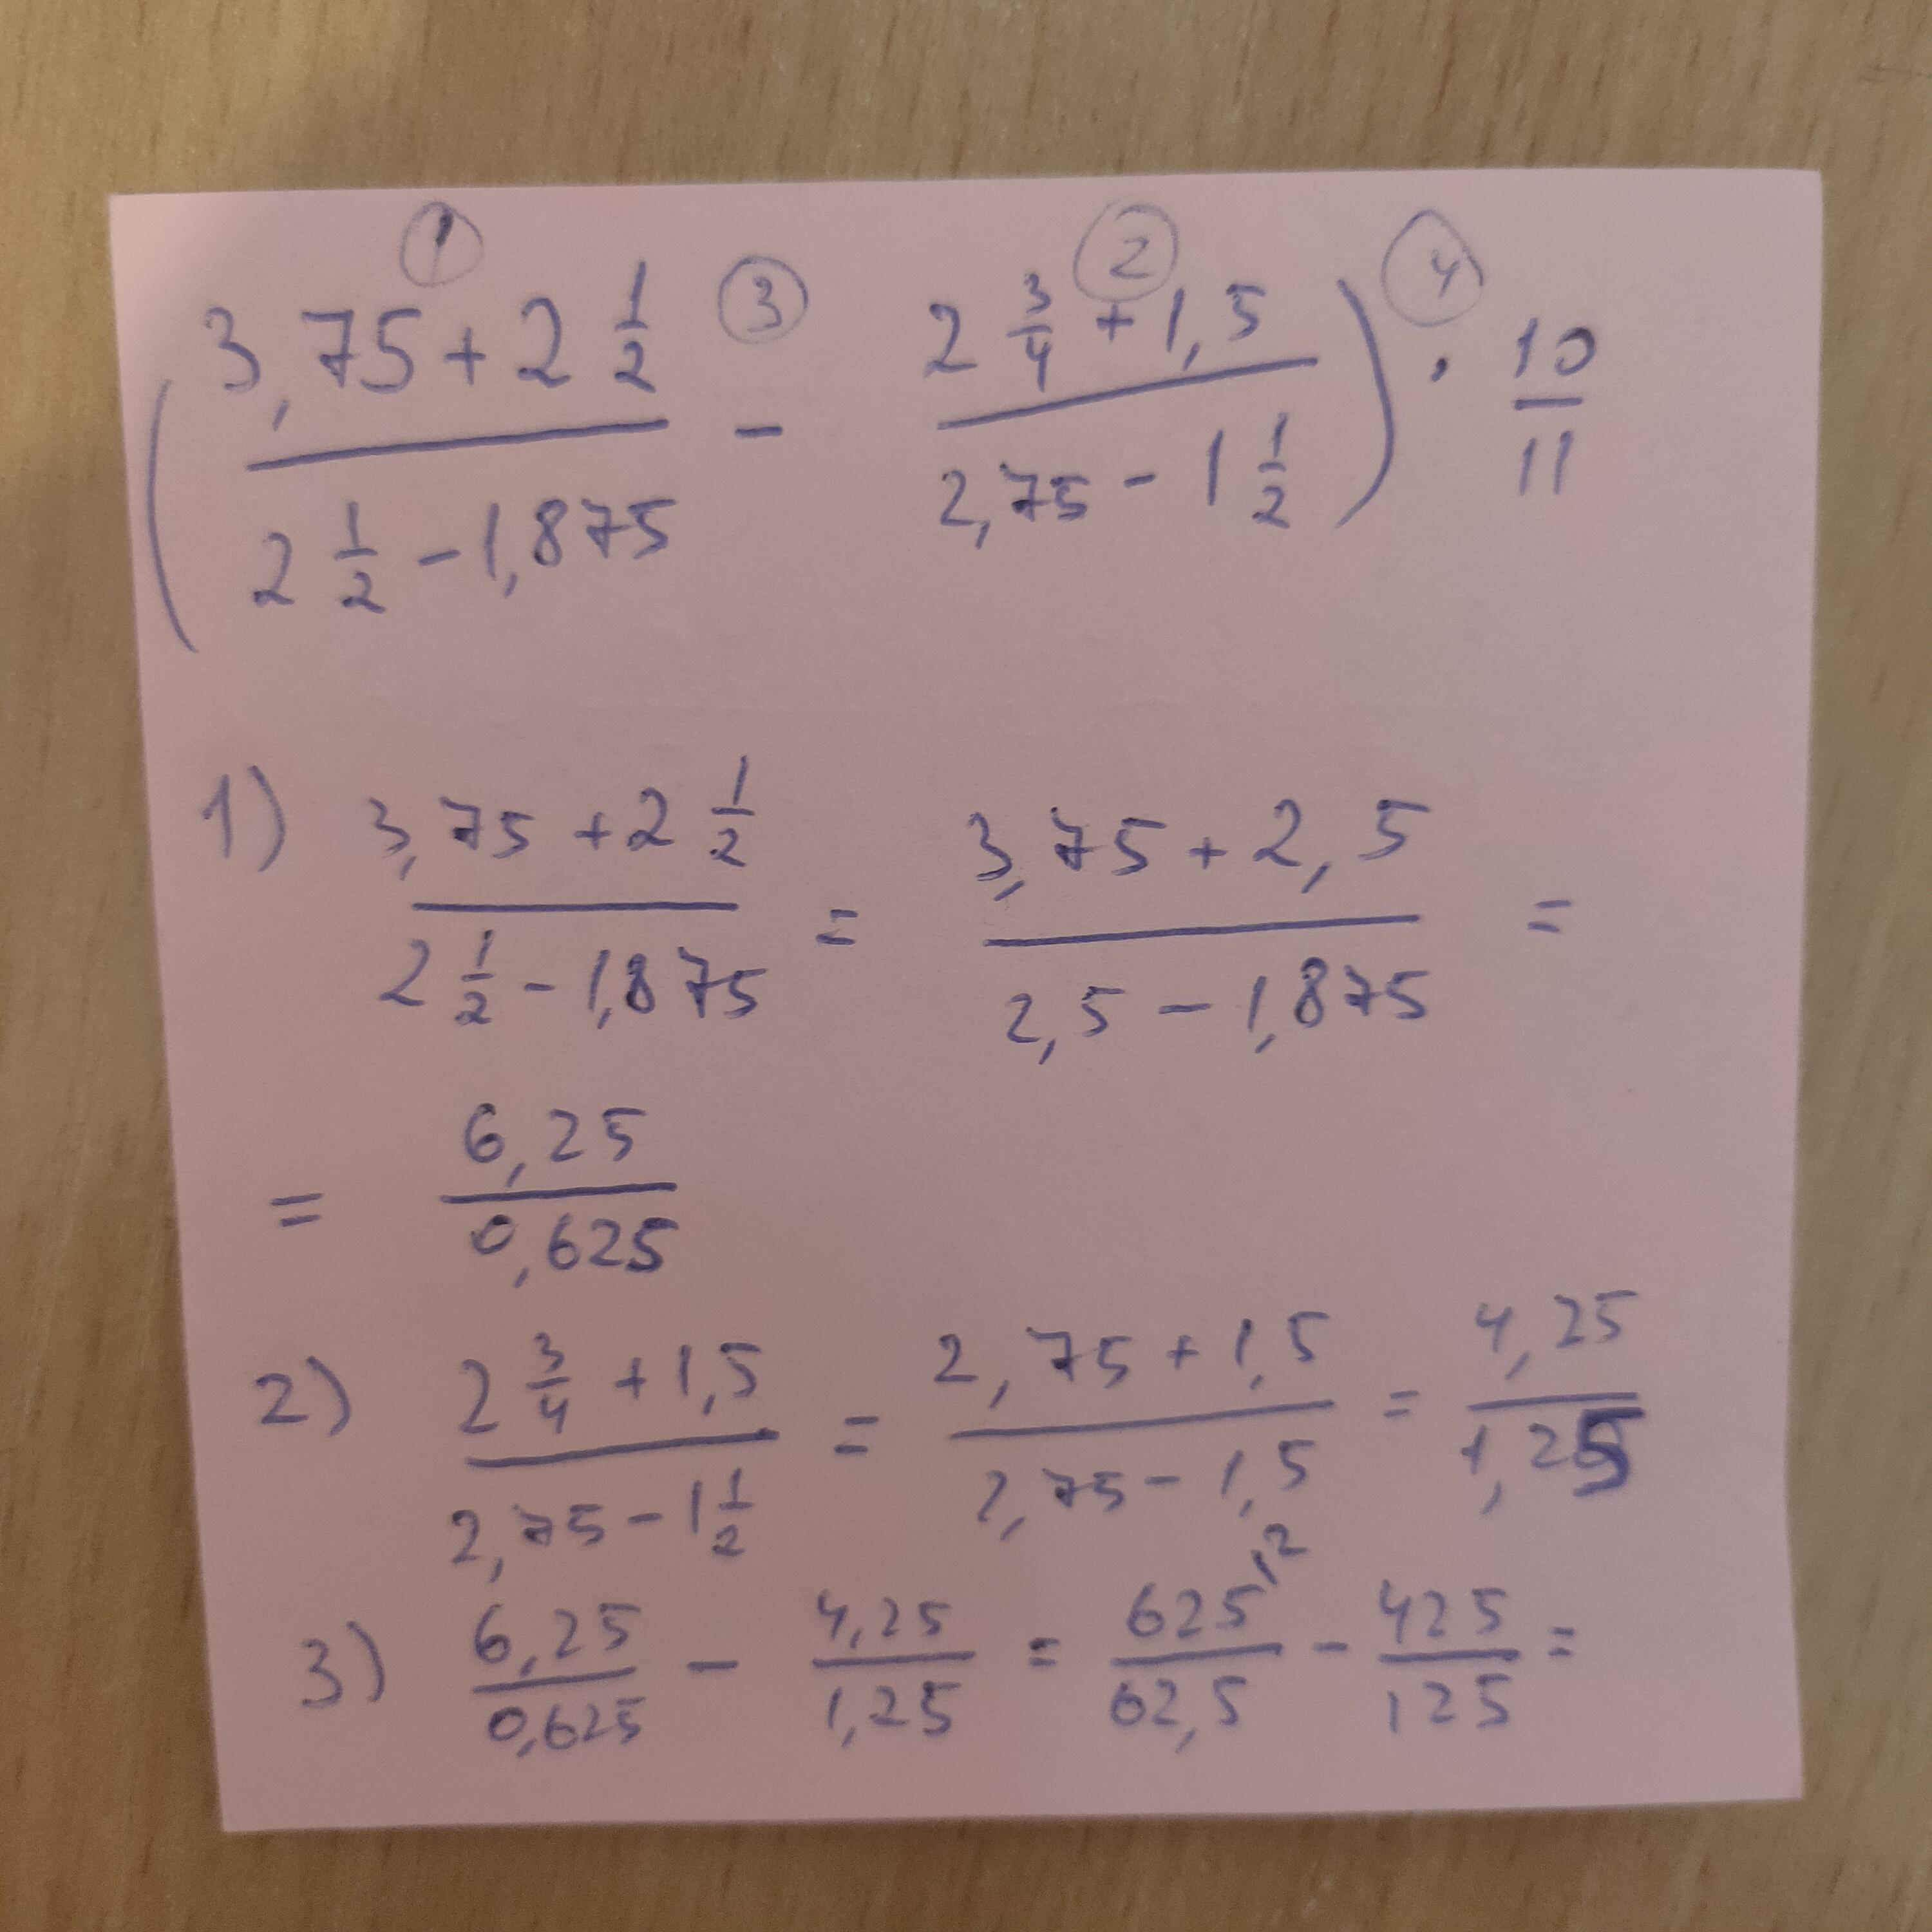 ① ③ ② ④
( (3,75 + 2 1/2) / (2 1/2 - 1,875) - (2 3/4 + 1,5) / (2,75 - 1 1/2) ) · 10/11
1) (3,75 + 2 1/2) / (2 1/2 - 1,875) = (3,75 + 2,5) / (2,5 - 1,875) =
= 6,25 / 0,625
2) (2 3/4 + 1,5) / (2,75 - 1 1/2) = (2,75 + 1,5) / (2,75 - 1,5) = 4,25 / 1,25
3) 6,25 / 0,625 - 4,25 / 1,25 = 625 \2 / 62,5 - 425 / 125 =